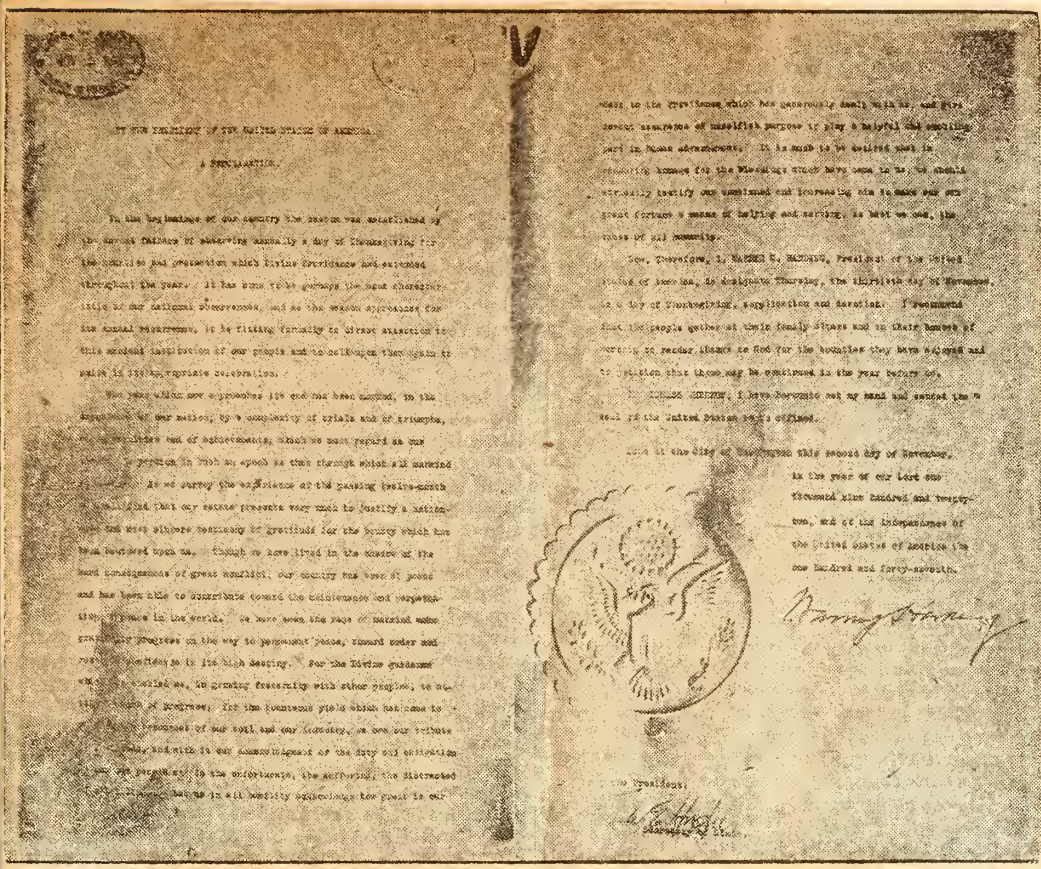 BY THE PRESIDENT OF THE UNITED STATES OF AMERICA
A PROCLAMATION.
In the beginnings of our country the custom was established by
the devout fathers of observing annually a day of Thanksgiving for
the bounties and protection which Divine Providence had extended
throughout the year. It has come to be perhaps the most character-
istic of our national observances, and as the season approaches for
its annual recurrence, it is fitting formally to direct attention to
this ancient institution of our people and to call upon them again to
unite in its appropriate celebration.
The year which now approaches its end has been marked, in the
experience of our nation, by a complexity of trials and of triumphs,
of difficulties and of achievements, which we must regard as our
portion in such an epoch as that through which all mankind
As we survey the experience of the passing twelve-month
that our estate presents very much to justify a nation-
wide and most sincere testimony of gratitude for the bounty which has
been bestowed upon us. Though we have lived in the shadow of the
hard consequences of great conflict, our country has been at peace
and has been able to contribute toward the maintenance and perpetua-
tion of peace in the world. We have seen the race of mankind make
progress on the way to permanent peace, toward order and
confidence in its high destiny. For the Divine guidance
which has enabled us, in growing fraternity with other peoples, to at-
of progress; for the bounteous yield which has come to
resources of our soil and our industry, we owe our tribute
and with it our acknowledgment of the duty and obligation
to the unfortunate, the suffering, the distracted
Let us in all humility acknowledge how great is our
debt to the Providence which has generously dealt with us, and give
devout assurance of unselfish purpose to play a helpful and ennobling
part in human advancement. It is much to be desired that in
rendering homage for the blessings which have come to us, we should
earnestly testify our continued and increasing aim to make our own
great fortune a means of helping and serving, as best we can, the
cause of all humanity.
Now, Therefore, I, WARREN G. HARDING, President of the United
States of America, do designate Thursday, the thirtieth day of November,
as a day of Thanksgiving, supplication and devotion. I recommend
that the people gather at their family altars and in their houses of
worship to render thanks to God for the bounties they have enjoyed and
to petition that these may be continued in the year before us.
IN WITNESS WHEREOF, I have hereunto set my hand and caused the
seal of the United States to be affixed.
Done at the City of Washington this second day of November,
in the year of our Lord one
thousand nine hundred and twenty-
two, and of the Independence of
the United States of America the
one hundred and forty-seventh.
Warren G Harding
the President:
Secretary of State